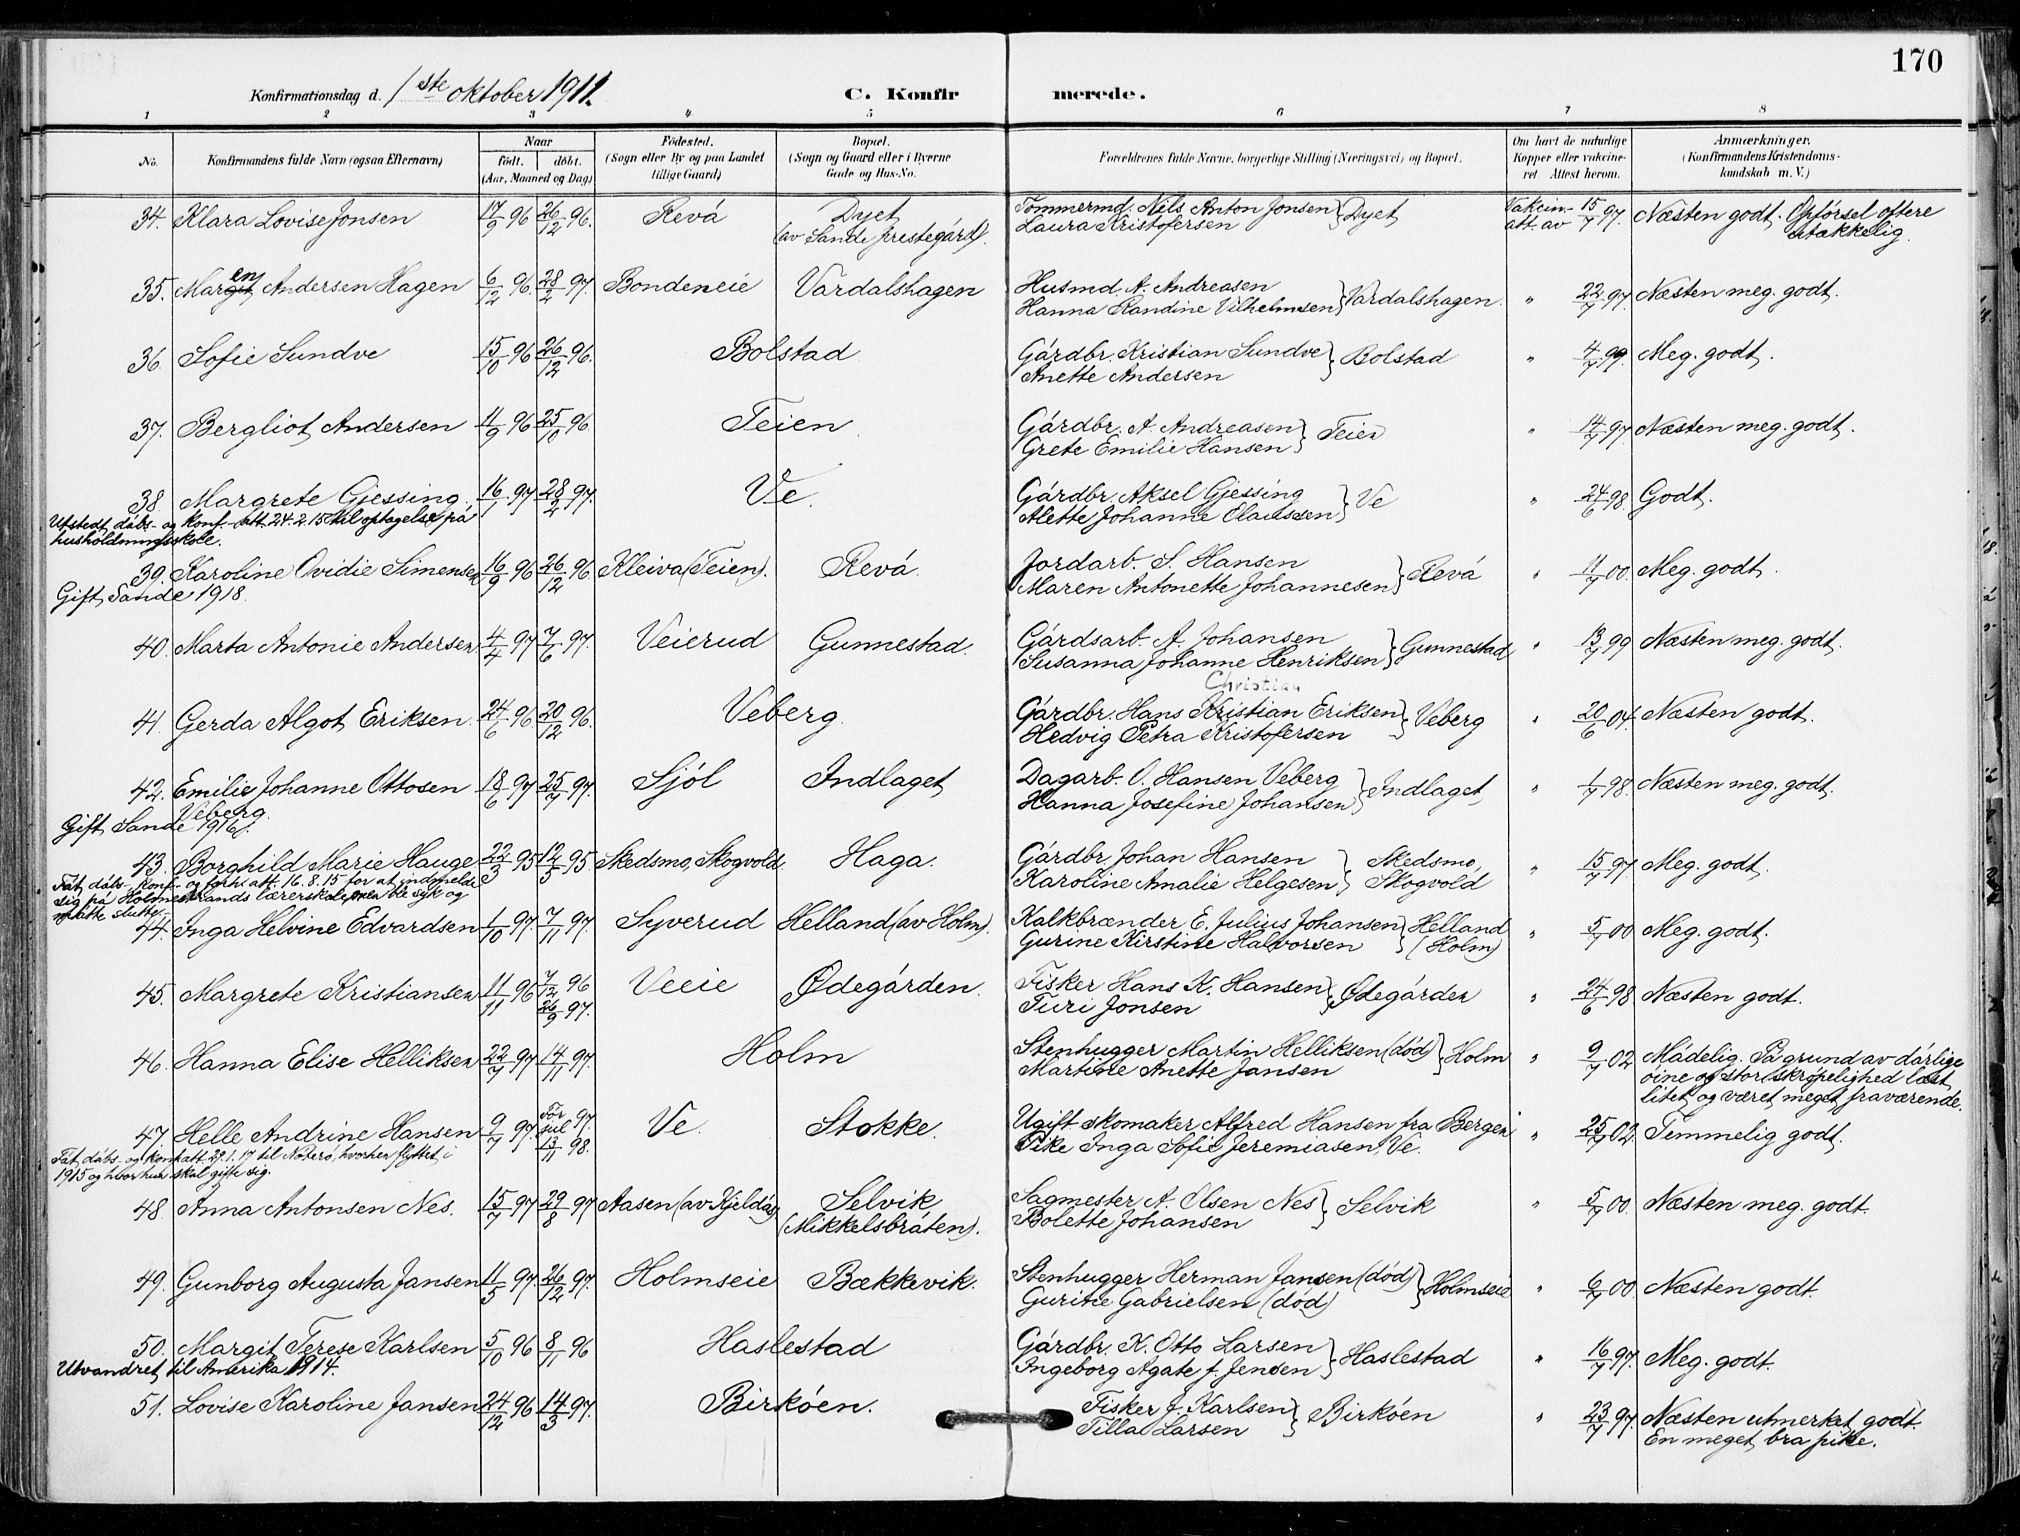 170
Konfirmationsdag d. 1ste oktober 1911.
C. Konfirmerede.
1 2 3 4 5 6 7 8
No.
Konfirmandens fulde Navn (ogsaa Efternavn)
Naar
født. døbt.
(Aar, Maaned og Dag)
Födested.
(Sogn eller By og paa Landet
tillige Gaard)
Bopæl.
(Sogn og Gaard eller i Byerne
Gade og Hus-No.
Forældrenes fulde Navne, borgerlige Stilling (Næringsvei) og Bopæl.
Om havt de naturlige
Kopper eller vakcine-
ret Attest herom.
Anmærkninger.
(Konfirmandens Kristendoms-
kundskab m. V.)
34. Klara Lovise Jonsen 17/9 96 26/12 96. Revå Dyet Tømmermd. Nels Anton Jonsen } Dyet Vakcin- 15/7 97. Næsten godt. Opførsel oftere
(av Sande prestegård). Laura Kristofersen att. av utækkelig.
35. Maren Andersen Hagen 6/12 96. 28/2 97. Bondeneie Vardalshagen Husmd. A. Andreasen } Vardalshagen. " 22/7 97. Næsten meg. godt.
Hanna Randine Vilhelmsen
36. Sofie Sundve 15/10 96 26/12 96. Bolstad Gårdbr. Kristian Sundve } Bolstad " 4/7 99. Meg. godt.
Anette Andersen
37. Bergliot Andersen 11/9 96 25/10 96. Teien Gårdbr. A. Andreasen } Teien " 14/7 97 Næsten meg. godt.
Grete Emilie Hansen
38. Margrete Gjessing. 16/1 97 28/2 97. Ve. Gårdbr. Aksel Gjessing } Ve " 24/6 98. Godt.
Utstedt dåbs- og konf.-att. 24.2.15 til optagelse på Alette Johanne Claussen
husholdningsskole.
39. Karoline Ovidie Simensen 16/9 96 26/12 96 Kleiva (Teien). Revå. Jordarb. S. Hansen } Revå " 11/7 00. Meg. godt.
Gift Sande 1918. Maren Antonette Johannesen
40. Marta Antonie Andersen 4/4 97 7/6 97. Veierud Gunnestad. Gårdsarb. A. Johansen } Gunnestad " 13/7 99 Næsten meg. godt.
Susanna Johanne Henriksen
Christian
41. Gerda Algot Eriksen. 24/6 96 20/12 96. Veberg. Gårdbr. Hans Kristian Eriksen } Veberg " 20/6 04. Næsten godt.
Hedvig Petra Kristofersen
42. Emilie Johanne Ottosen 18/6 97 25/7 97. Sjøl Indlaget Dagarb. O. Hansen Veberg } Indlaget " 1/7 98. Næsten meg. godt.
Veberg. Hanna Josefine Johansen
Gift Sande 1916.
43. Borghild Marie Hauge 22/3 95 12/5 95 Skedsmo, Skogvold Haga. Gårdbr. Johan Hansen } Skedsmo, " 15/7 97 Meg. godt.
Fåt dåbs- konf- og forhl att. 16.8.15 for at indmelde Karoline Amalie Helgesen Skogvold
sig på Holmestrands lærerskole, men ble syk og
måtte slutte.
44. Inga Helvine Edvardsen 1/10 97. 7/11 97. Syverud Helland (av Holm). Kalkbrænder E. Julius Johansen } Helland " 5/7 00 Meg. godt.
Gurine Kirstine Halvorsen (Holm)
45. Margrete Kristiansen 11/11 96 7/12 96 Veeie Ødegården. Fisker Hans K. Hansen } Ødegården " 24/6 98. Næsten godt.
26/9 97. Turi Jonsen
46. Hanna Elise Helliksen 22/7 97 14/11 97. Holm Stenhugger Martin Helliksen (død) } Holm " 9/7 02 Mådelig. På grund av dårlige
Martine Anette Jansen øine og stor skrøpelighed læst
litet og været meget fraværende.
47. Helle Andrine Hansen 9/7 97. Før jul 97. Ve. Stokke. Ugift skomaker Alfred Hansen fra Bergen " 25/7 02. Temmelig godt.
13/11 98. Pike Inga Sofie Jeremiasen, Ve.
Fåt dåbs- og konf att. 29.1.17 til Nøterø, hvorhen flyttet i
1915 og hvor hun skal gifte sig.
48. Anna Antonsen Nes. 15/7 97 29/8 97 Aasen (av Kjeldås) Selvik Sagmester A. Olsen Nes } Selvik " 5/7 00. Næsten meg. godt.
(Mikkelsbråten). Bolette Johansen
49. Gunborg Augusta Jansen 11/5 97. 26/12 97. Holmseie Bækkevik. Stenhugger Herman Jansen (død) } Holmseie " 6/7 00. Næsten godt.
Gurine Gabrielsen (død)
50. Margit Terese Karlsen 5/10 96 8/11 96 Haslestad Gårdbr. K. Otto Larsen } Haslestad " 16/7 97. Meg. godt.
Utvandret til Amerika 1914. Ingeborg Agate f. Jensen
51. Lovise Karoline Jansen 24/12 96 14/3 97. Birkøen. Fisker J. Karlsen } Birkøen " 23/7 97. Næsten utmerket godt.
Tilla Larsen En meget bra pike.